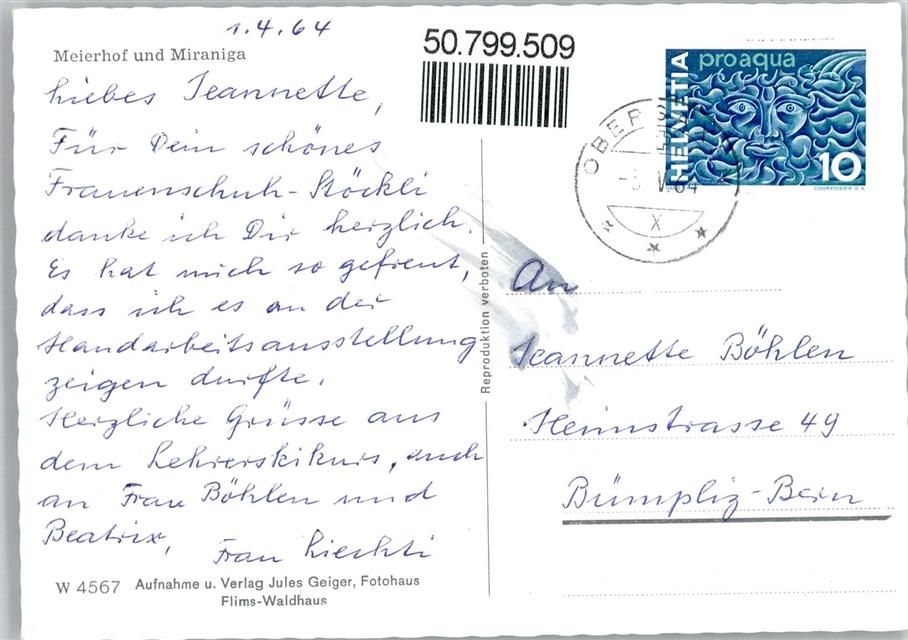 1.4.64
Meierhof und Miraniga
Liebes Jeannette,
Für Dein schönes
Frauenschuh-Stöckli
danke ich Dir herzlich.
Es hat mich so gefreut,
dass ich es an der
Handarbeitsausstellung
zeigen durfte.
Herzliche Grüsse aus
dem Lehrerskikurs, auch
an Frau Böhlen und
Beatrix,
Frau Liechti
W 4567 Aufnahme u. Verlag Jules Geiger, Fotohaus
Flims-Waldhaus
Reproduktion verboten
50.799.509
HELVETIA
pro aqua
10
COURVOISIER S.A.
OBER
64
X
An
Jeannette Böhlen
Heimstrasse 49
Bümpliz-Bern